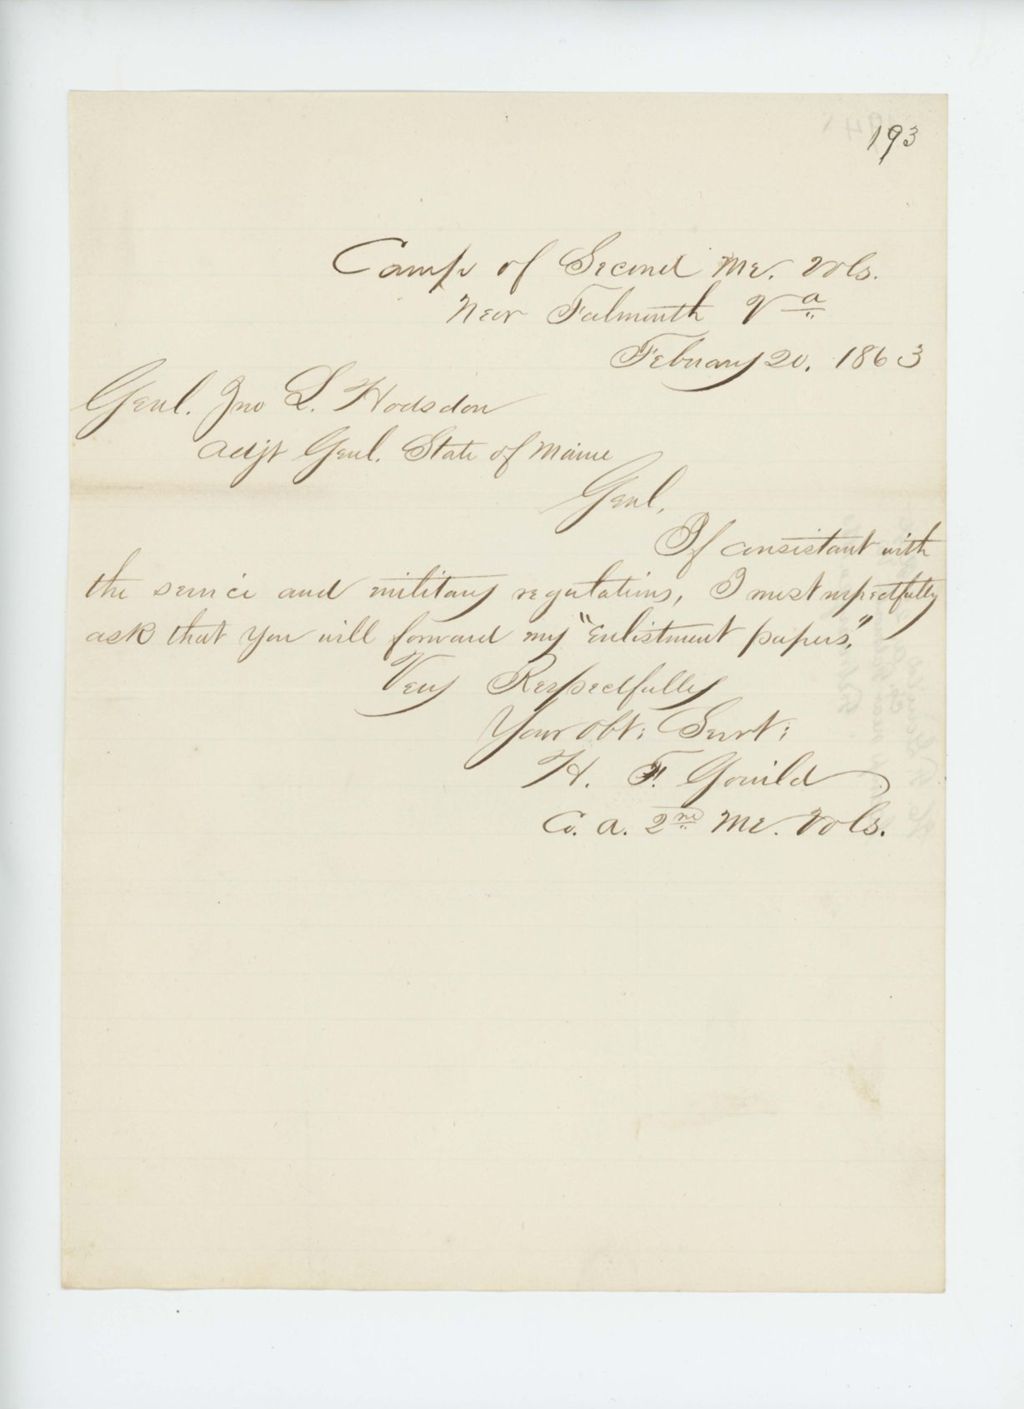 193
Camp of Second Me. Vols.
Near Falmouth Va
February 20, 1863
Genl. Jno L. Hodsdon
Adjt Genl. State of Maine
Genl,
If consistant with
the service and military regulations, I most respectfully
ask that you will forward my "Enlistment papers".
Very Respectfully
Your Obt; Servt;
H. F. Gouild
Co. A. 2nd Me. Vols.